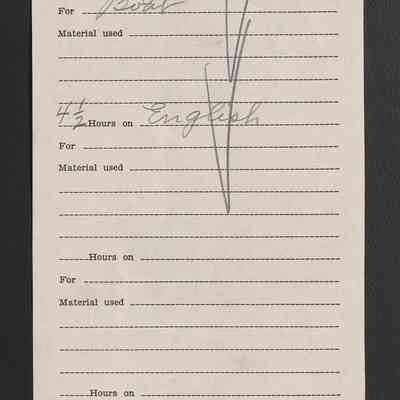 For Boat
Material used
4 1/2 Hours on English
For
Material used
Hours on
For
Material used
Hours on